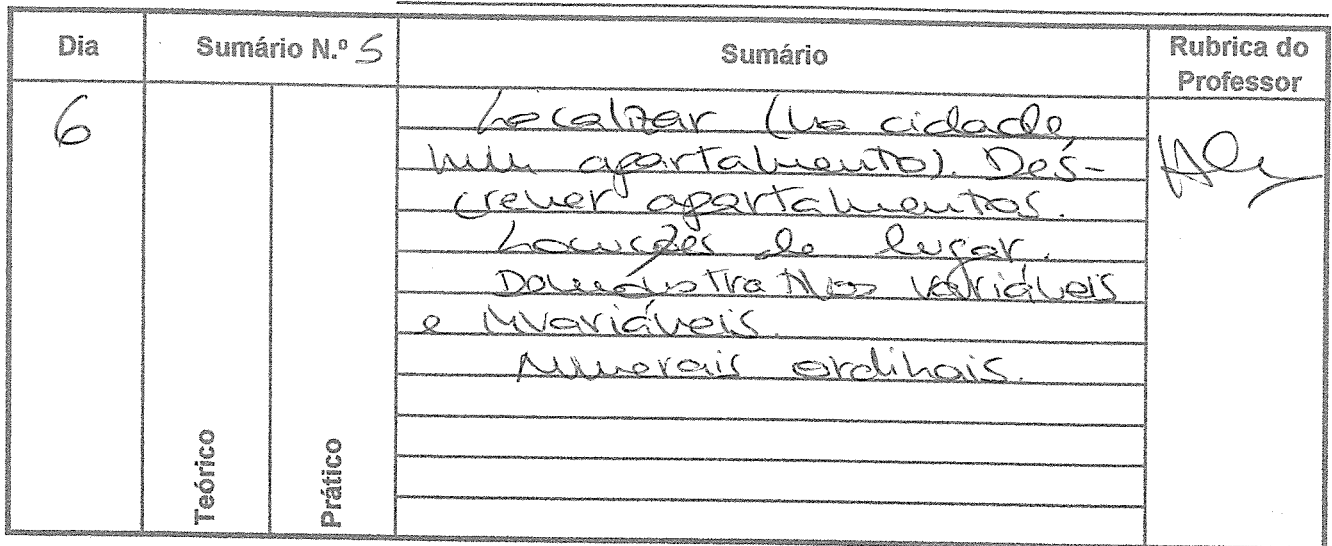 Dia
Sumário N.º 5
Sumário
Rubrica do
Professor
6
Localizar (na cidade,
num apartamento). Des-
crever apartamentos.
Locuções de lugar.
Demonstrativos variáveis
e invariáveis.
Numerais ordinais.
Teórico
Prático